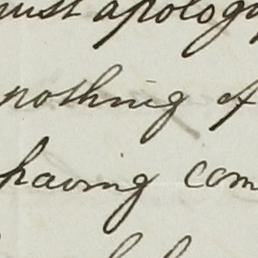 must apology
nothing of
having com